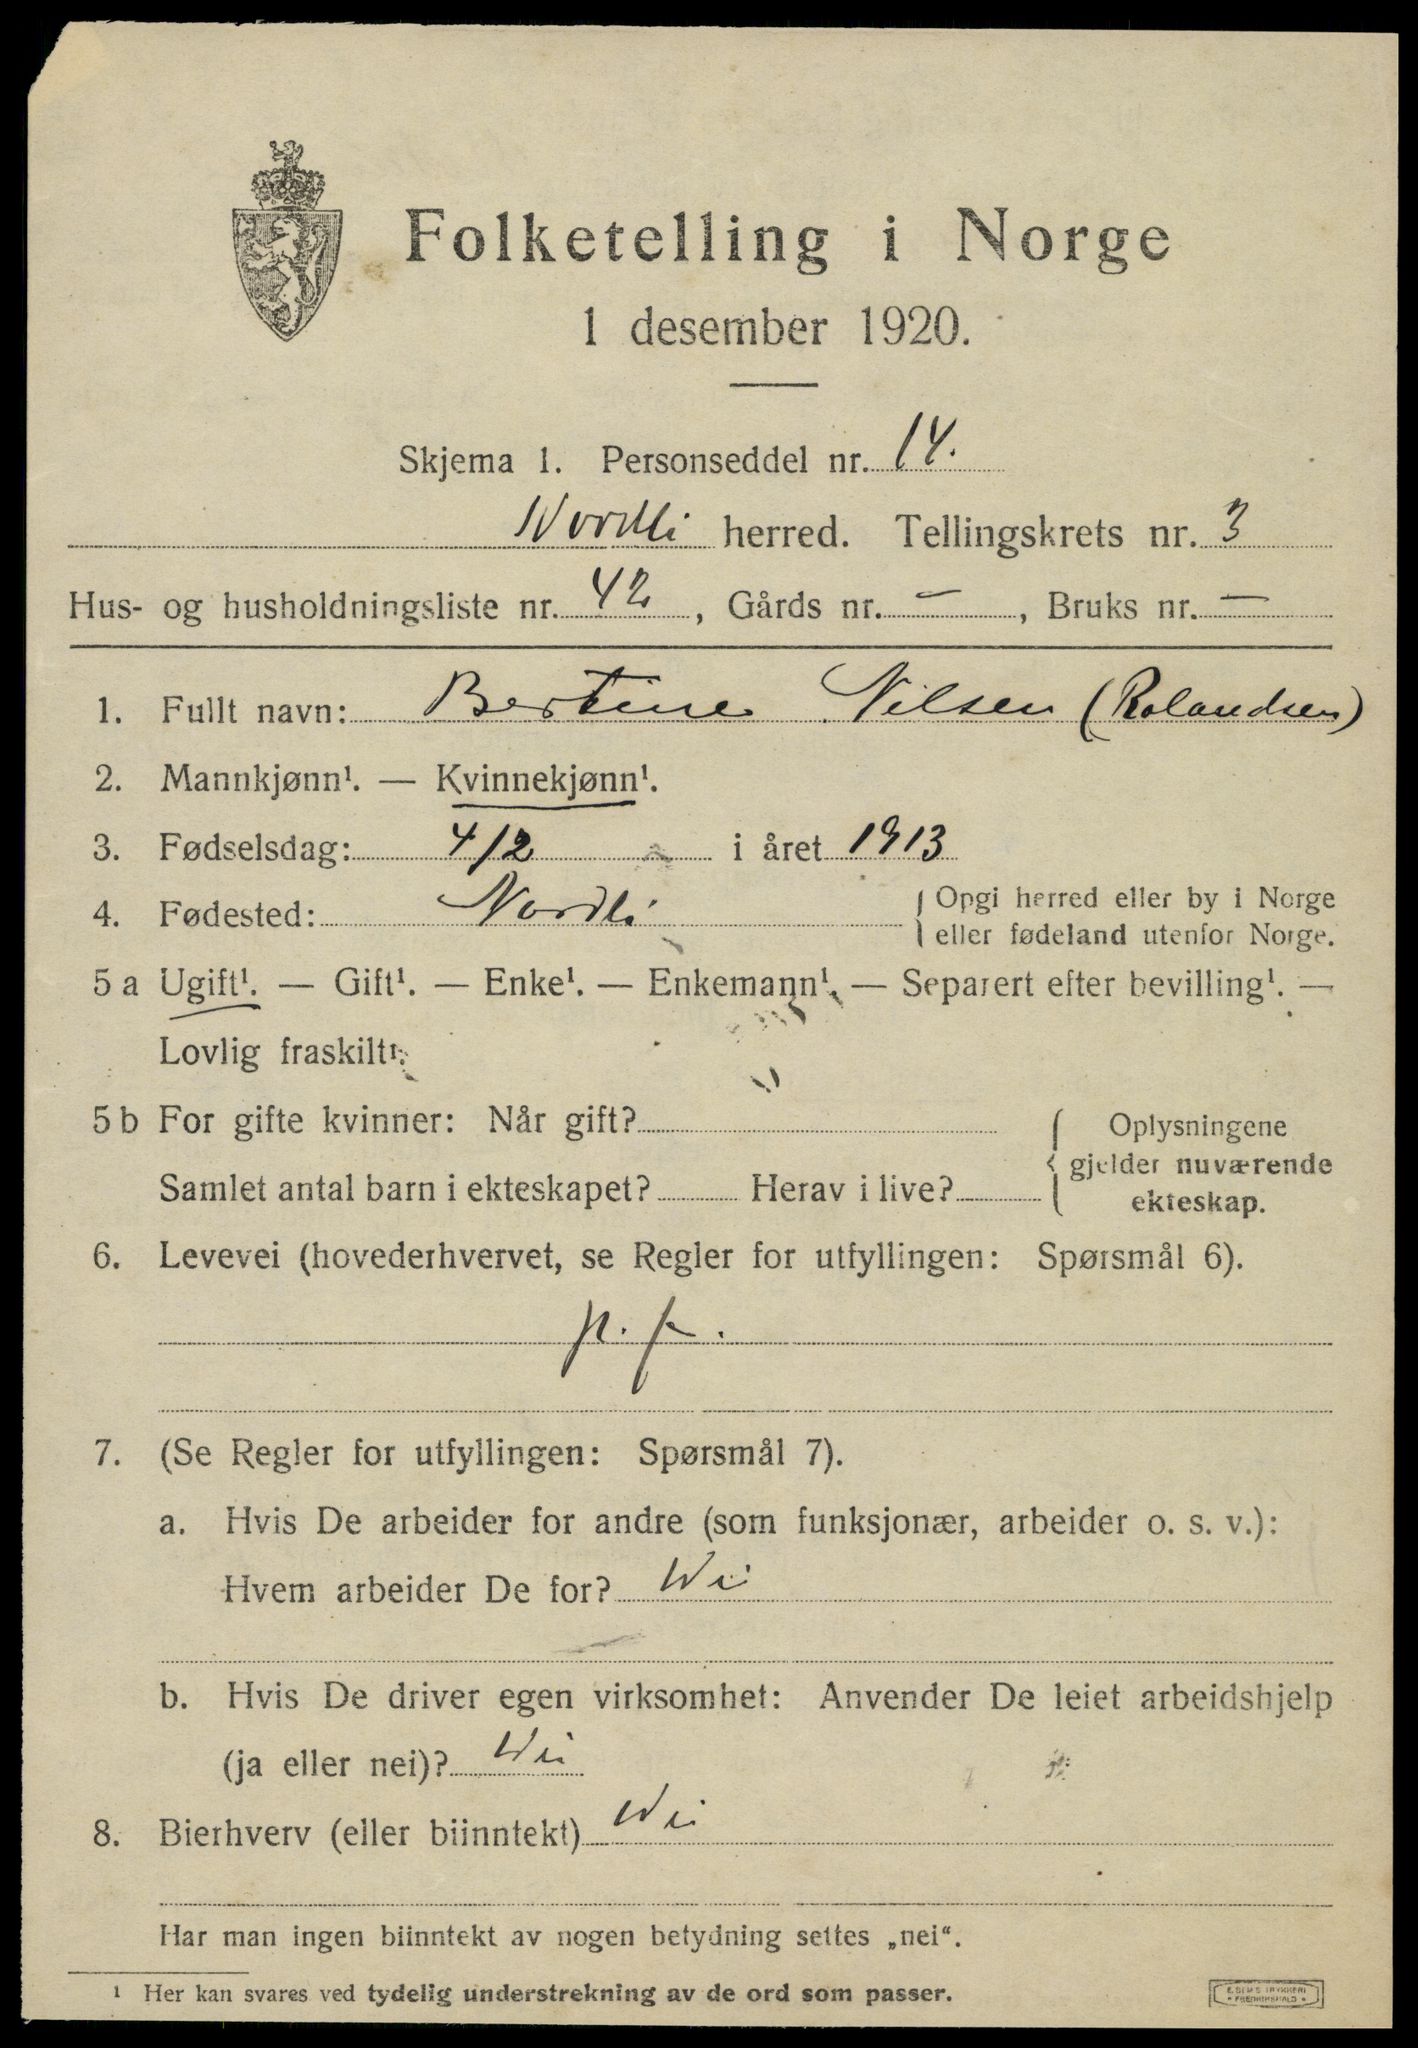 Folketelling i Norge
1 desember 1920.
Skjema 1. Personseddel nr. 14.
Nordli herred. Tellingskrets nr. 3
Hus- og husholdningsliste nr. 42, Gårds nr. —, Bruks nr. —
1. Fullt navn: Bertine Nilsen (Rolandsen)
2. Mannkjønn¹. — Kvinnekjønn¹.
3. Fødselsdag: 4/2 i året 1913
4. Fødested: Nordli { Opgi herred eller by i Norge
eller fødeland utenfor Norge.
5 a Ugift¹. — Gift¹. — Enke¹. — Enkemann¹. — Separert efter bevilling¹. —
Lovlig fraskilt¹.
5 b For gifte kvinner: Når gift?
Samlet antal barn i ekteskapet? Herav i live?
{ Oplysningene
gjelder nuværende
ekteskap.
6. Levevei (hovederhvervet, se Regler for utfyllingen: Spørsmål 6).
7. (Se Regler for utfyllingen: Spørsmål 7).
a. Hvis De arbeider for andre (som funksjonær, arbeider o. s. v.):
Hvem arbeider De for?
b. Hvis De driver egen virksomhet: Anvender De leiet arbeidshjelp
(ja eller nei)?
8. Bierhverv (eller biinntekt)
Har man ingen biinntekt av nogen betydning settes „nei“.
¹ Her kan svares ved tydelig understrekning av de ord som passer.